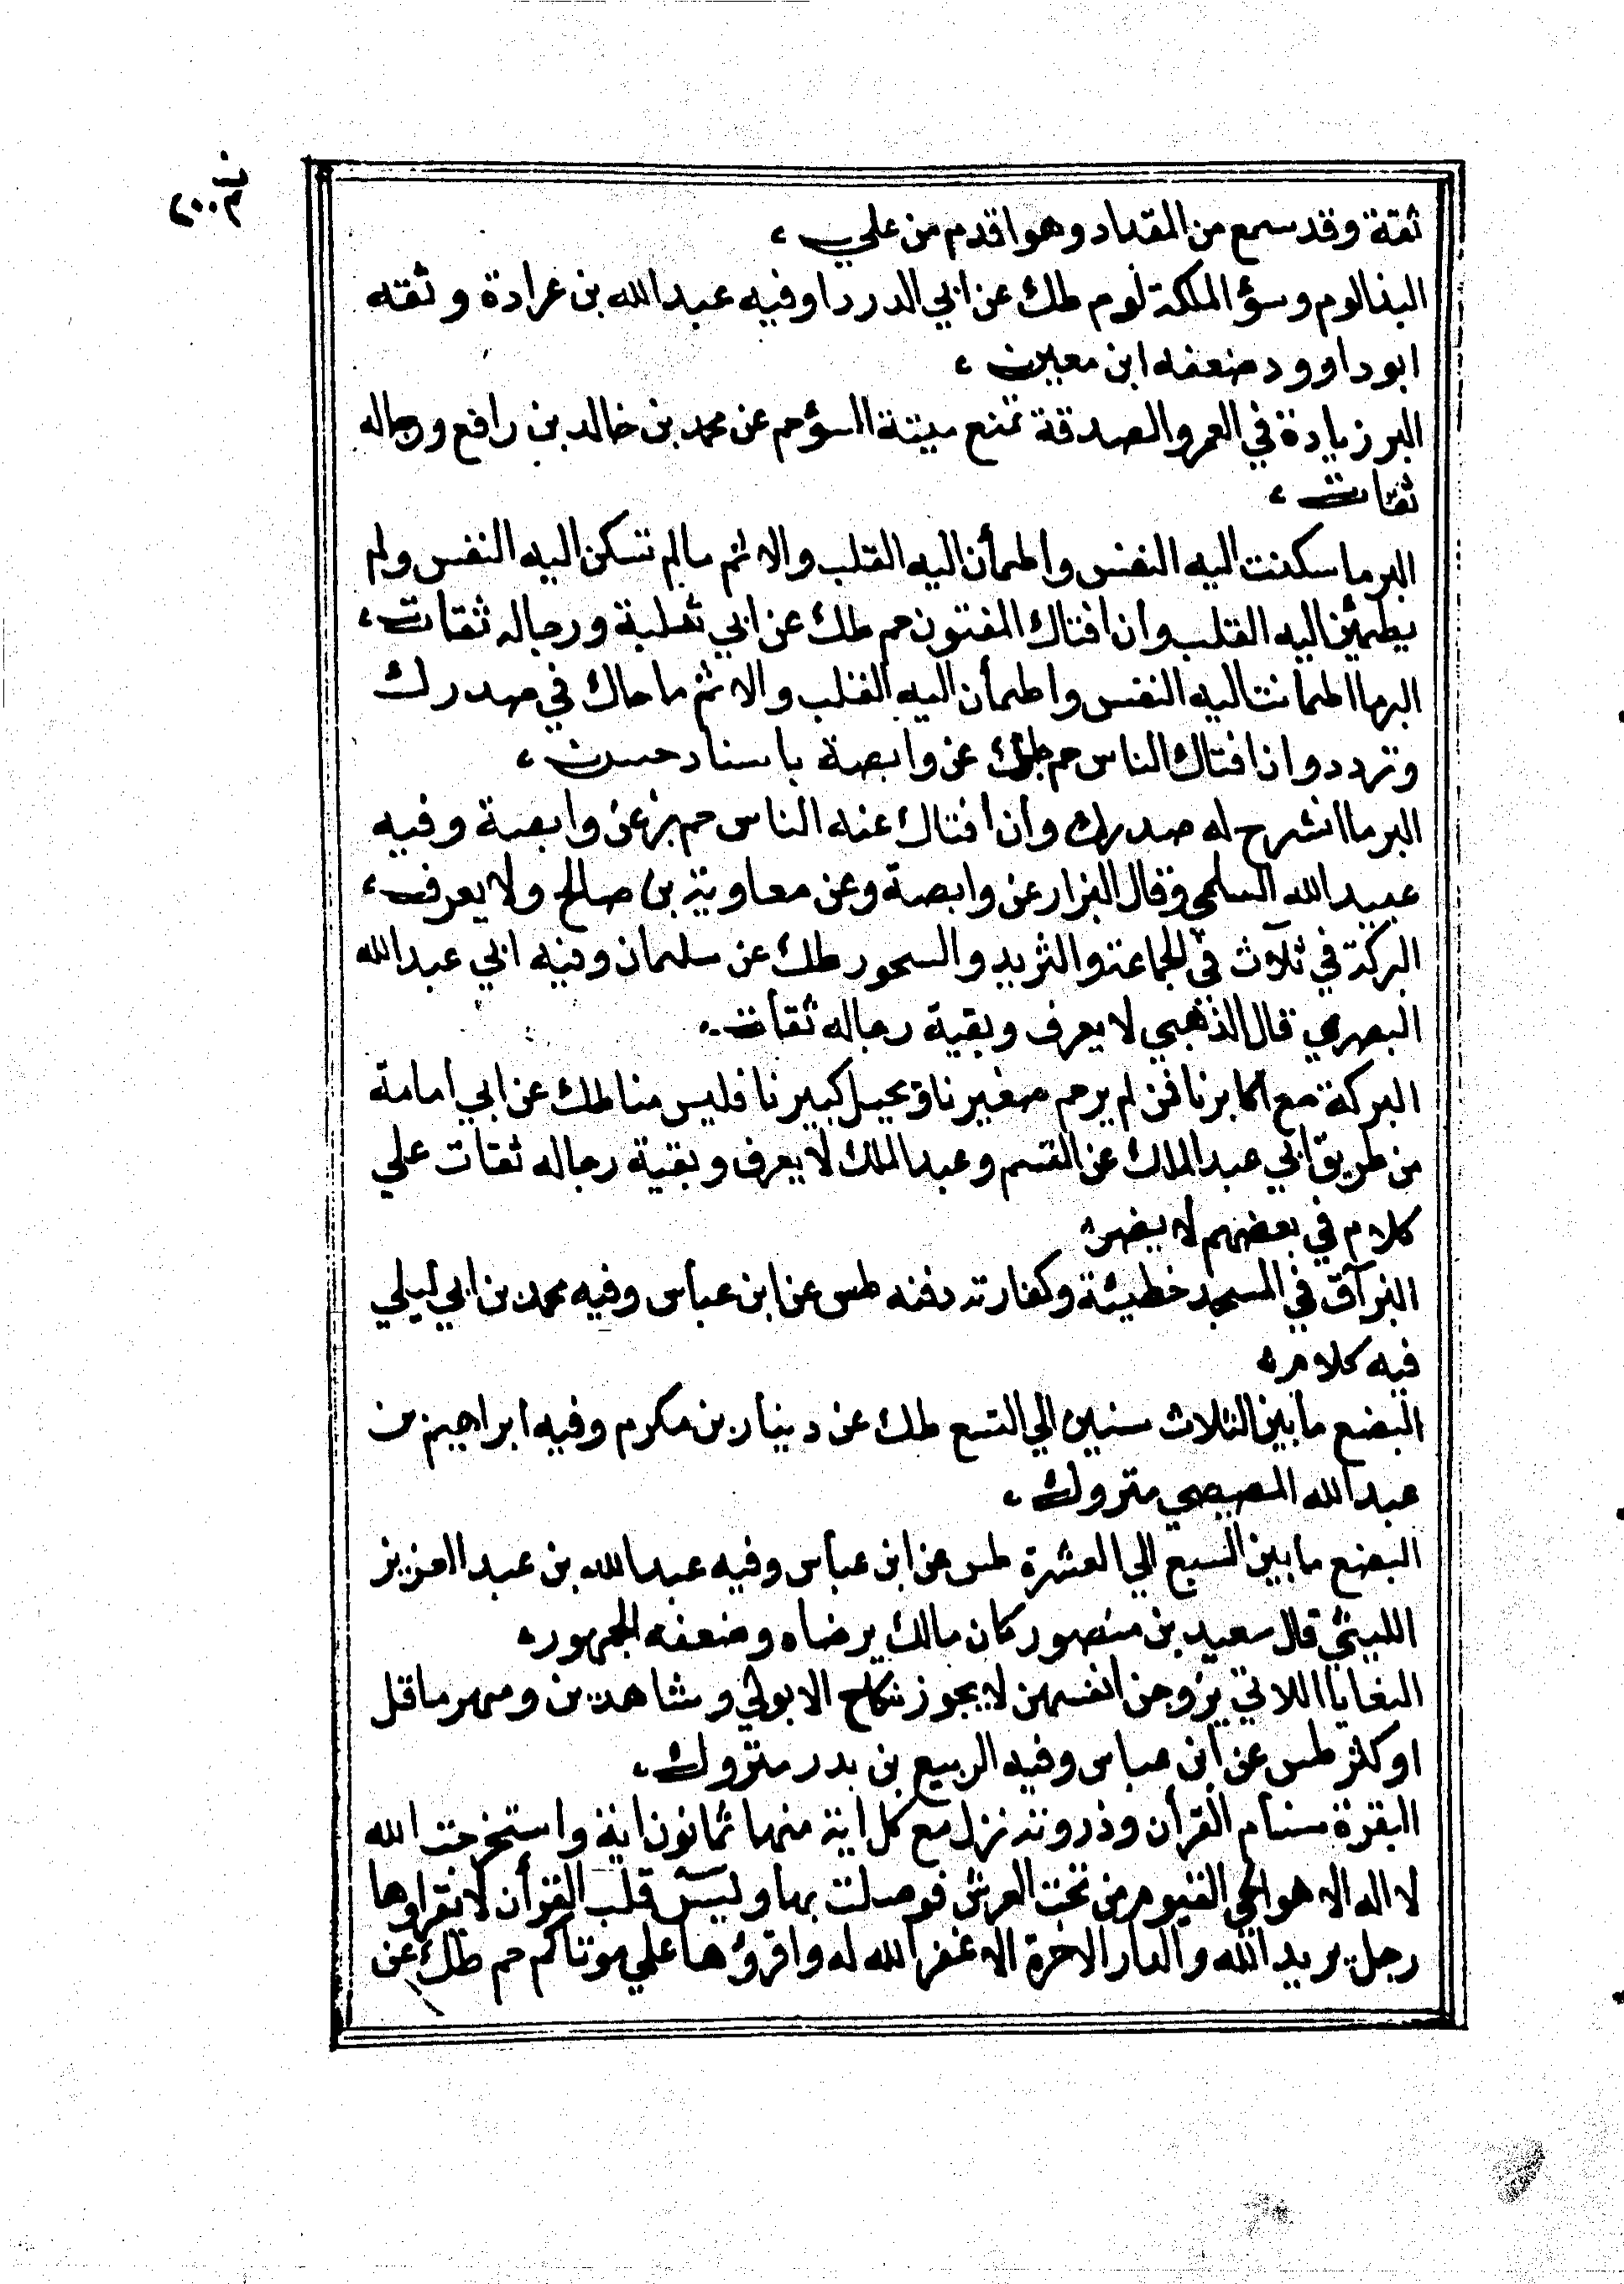 ثقة وقد سمع من المقداد وهو اقدم من علي ،
البذا لوم وسؤ الملكة لوم طك عن ابي الدردا وفيه عبد الله بن عرادة وثقه
ابو داوود ضعفه ابن معين ،
البر زيادة في العمر والصدقة تمنع ميتة السؤ حم عن محمد بن خالد بن رافع ورجاله
ثقات ،
البر ما سكنت اليه النفس واطمأن اليه القلب والاثم مالم تسكن اليه النفس ولم
يطمئن اليه القلب وان افتاك المفتون حم طك عن ابي ثعلبة ورجاله ثقات ،
البر ما اطمانت اليه النفس واطمأن اليه القلب والاثم ما حاك في صدرك
وتردد وان افتاك الناس حم طك عن وابصة باسناد حسن ،
البر ما انشرح له صدرك وان افتاك عنه الناس حم بز عن وابصة وفيه
عبيد الله السلمي وقال البزار عن وابصة وعن معاوية بن صالح ولا يعرف ،
البركة في ثلاث في الجماعة والثريد والسحور طك عن سلمان وفيه ابي عبد الله
البصري قال الذهبي لا يعرف وبقية رجاله ثقات
البركة مع اكابرنا فمن لم يرحم صغيرنا ويجل كبيرنا فليس منا طك عن ابي امامة
من طريق ابي عبد الملك عن القسم وعبد الملك لا يعرف وبقية رجاله ثقات علي
كلام في بعضهم لا يضر
البزاق في المسجد خطيئة وكفارته دفنه طس عن ابن عباس وفيه محمد بن ابي ليلي
فيه كلام
البضع ما بين الثلاث سنين الي التسع طك عن دينار بن مكرم وفيه ابراهيم بن
عبد الله المصيصي متروك ،
البضع ما بين السبع الي العشرة طس عن ابن عباس وفيه عبد الله بن عبد العزيز
الليثي قال سعيد بن منصور كان مالك يرضاه وضعفه الجمهور
البغايا اللاتي يزوجن انفسهن لا يجوز نكاح الا بولي وشاهدين ومهر ما قل
او كثر طس عن ابن عباس وفيه الربيع بن بدر متروك
البقرة سنام القرأن وذروته نزل مع كل اية منها ثمانون اية واستخرجت الله
لا اله الا هو الحي القيوم من تحت العرش فوصلت بها وليس قلب القرأن لا يقراوها
رجل يريد الله والدار الاخرة الا غفر الله له واقرؤها علي موتاكم حم طك عن